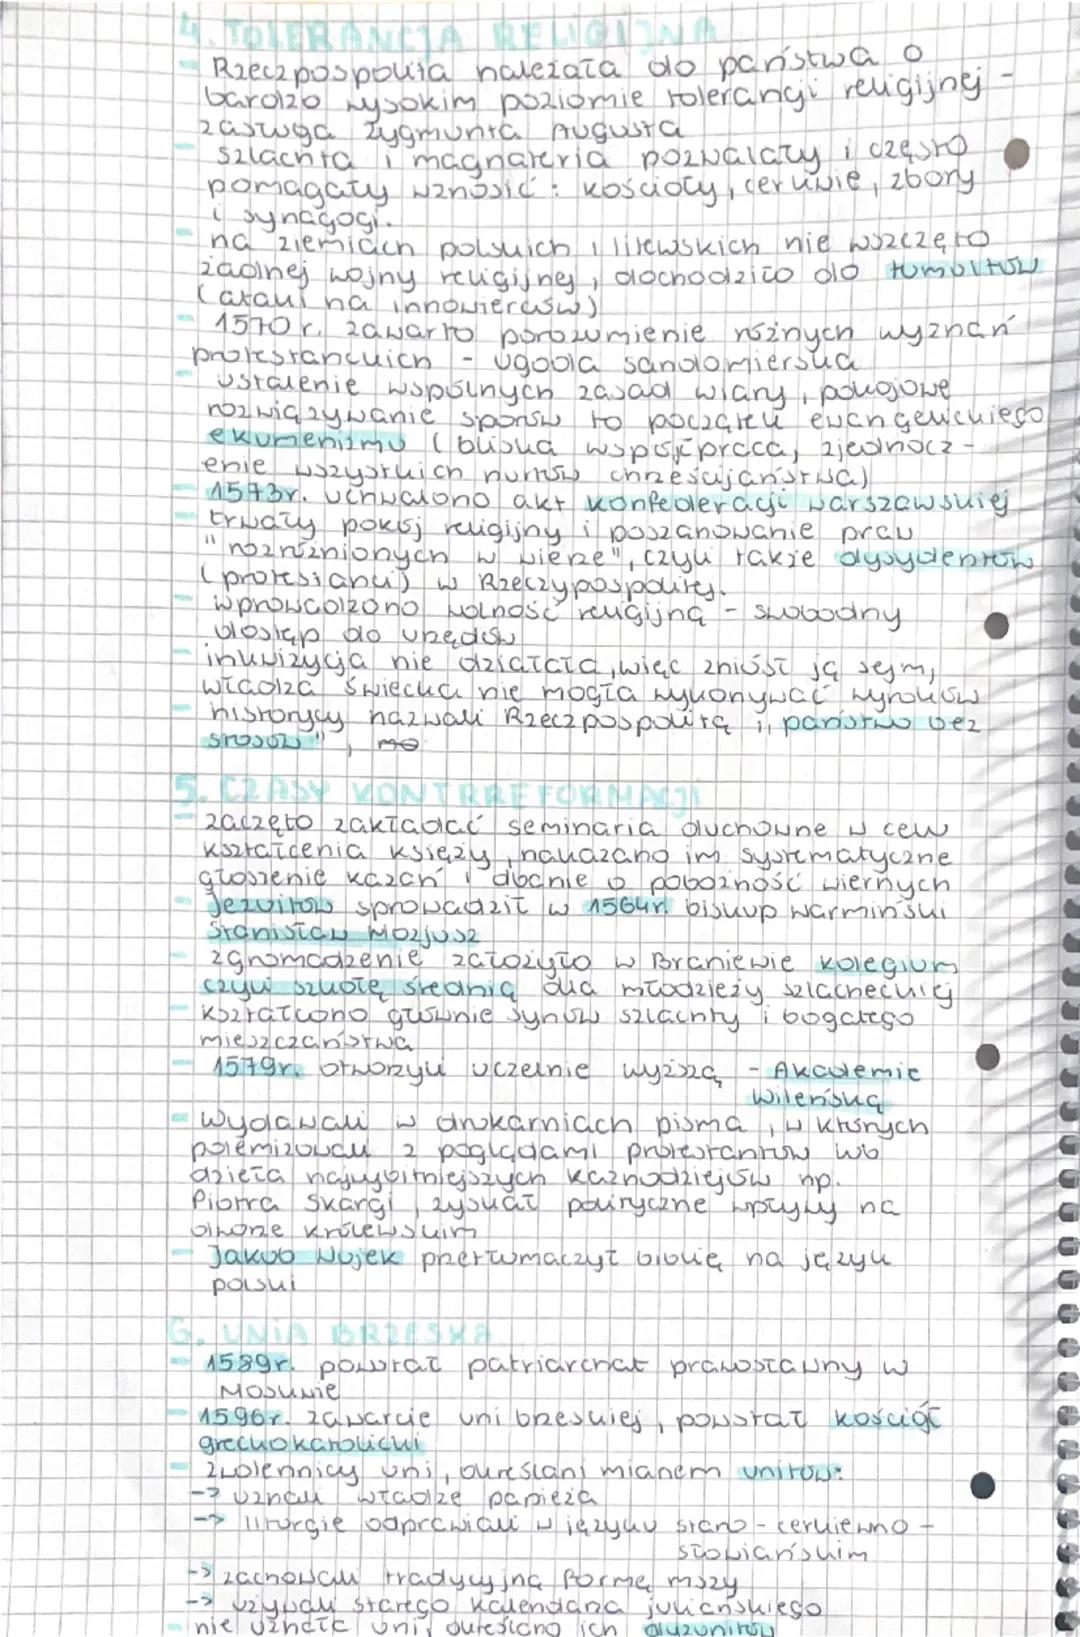 4. TOLERANCJA RELIGIJNA
- Rzeczpospolita należała do państwa o
bardzo wysokim poziomie tolerancji religijnej -
zasługa Zygmunta Augusta
- szlachta i magnateria pozwalały i często
pomagały wznosić: kościoły, cerkwie, zbory
i synagogi.
- na ziemiach polskich i litewskich nie wszczęto
żadnej wojny religijnej, dochodziło do tumultów
(ataki na innowierców)
- 1570 r. zawarto porozumienie różnych wyznań
protestanckich - ugoda sandomierska
- ustalenie wspólnych zasad wiary, pokojowe
rozwiązywanie sporów to początki ewangelickiego
ekumenizmu (bliska współpraca, zjednocz-
enie wszystkich nurtów chrześcijaństwa)
- 1573r. uchwalono akt konfederacji warszawskiej
- trwały pokój religijny i poszanowanie praw
"rozróżnionych w wierze", czyli także dysydentów
(protestanci) w Rzeczypospolitej.
- wprowadzono wolność religijną - swobodny
dostęp do urzędów
- inkwizycja nie działała, więc zniósł ją sejm,
władza świecka nie mogła wykonywać wyroków
- historycy nazwali Rzeczpospolitą ,,państwo bez
stosów",
5. CZASY KONTRREFORMACJI
- zaczęto zakładać seminaria duchowne w celu
kształcenia księży, nakazano im systematyczne
głoszenie kazań i dbanie o pobożność wiernych
- Jezuitów sprowadził w 1564r. biskup warmiński
Stanisław Hozjusz
- zgromadzenie założyło w Braniewie kolegium
czyli szkołę średnią dla młodzieży szlacheckiej
- kształcono głównie synów szlachty i bogatego
mieszczaństwa
- 1579r. otworzyli uczelnie wyższą - Akademie
Wileńską
- Wydawali w drukarniach pisma, w których
polemizowali z poglądami protestantów lub
dzieła najwybitniejszych kaznodziejów np.
Piotra Skargi, zyskał polityczne wpływy na
dworze królewskim
- Jakub Wujek przetłumaczył biblię na języku
polski
6. UNIA BRZESKA
- 1589r. powstał patriarchat prawosławny w
Moskwie
- 1596r. zawarcie uni brzeskiej, powstał kościół
greckokatolicki
- zwolennicy uni, określani mianem unitów:
-> uznali władze papieża
-> liturgie odprawiali w języku staro-cerkiewno-
słowiańskim
-> zachowali tradycyjną formę mszy
-> używali starego kalendarza juliańskiego
- nie uznała uni, określano ich dyzunitów